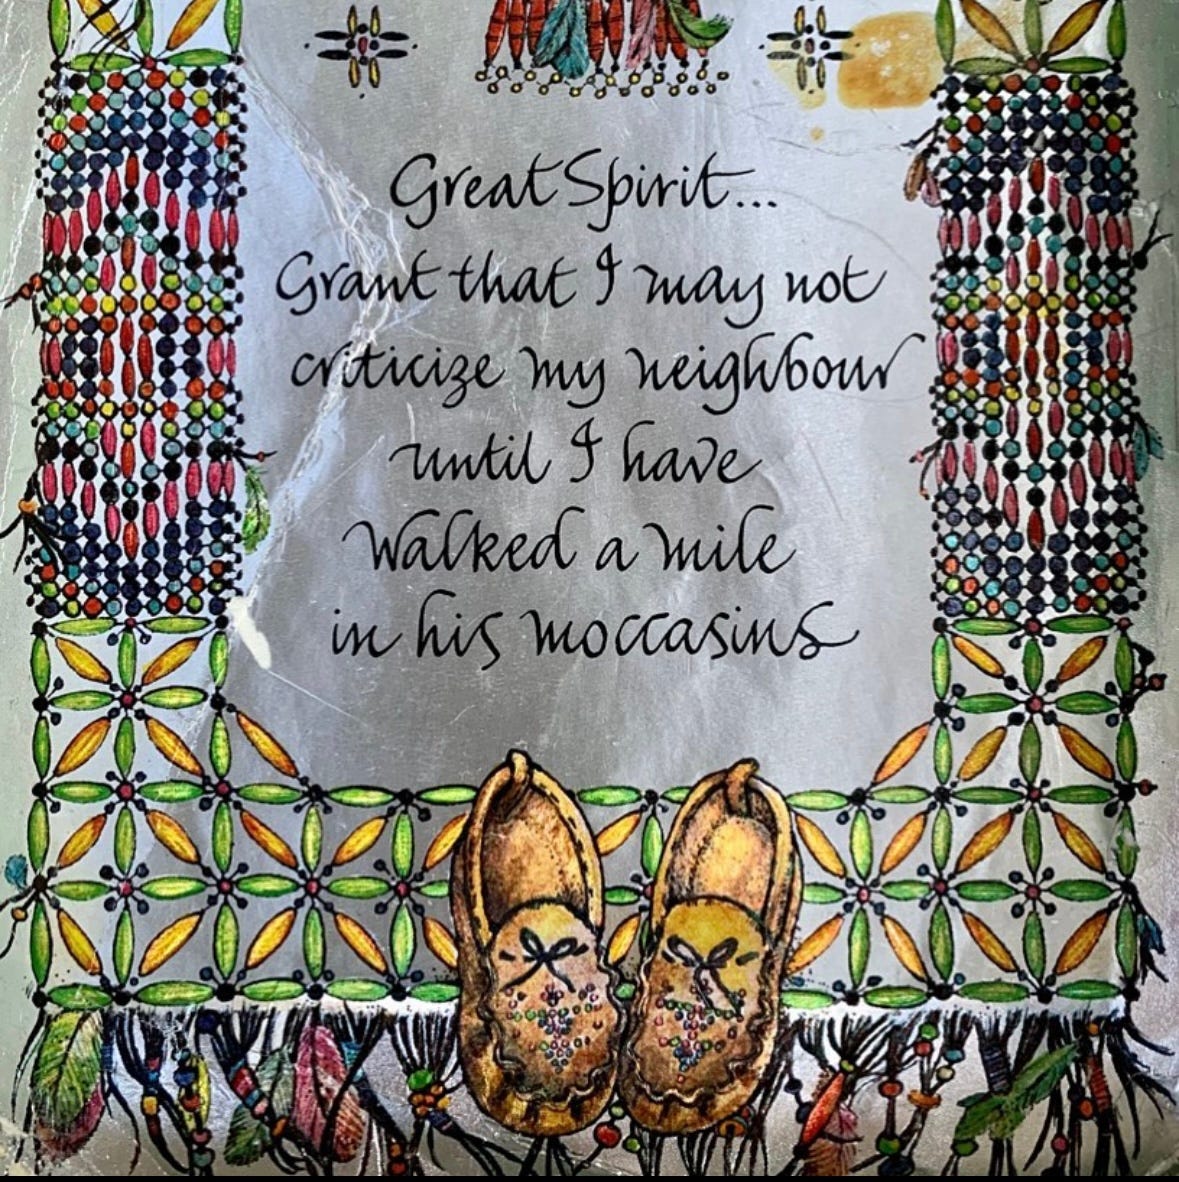 Great Spirit...
Grant that I may not
criticize my neighbour
until I have
walked a mile
in his moccasins